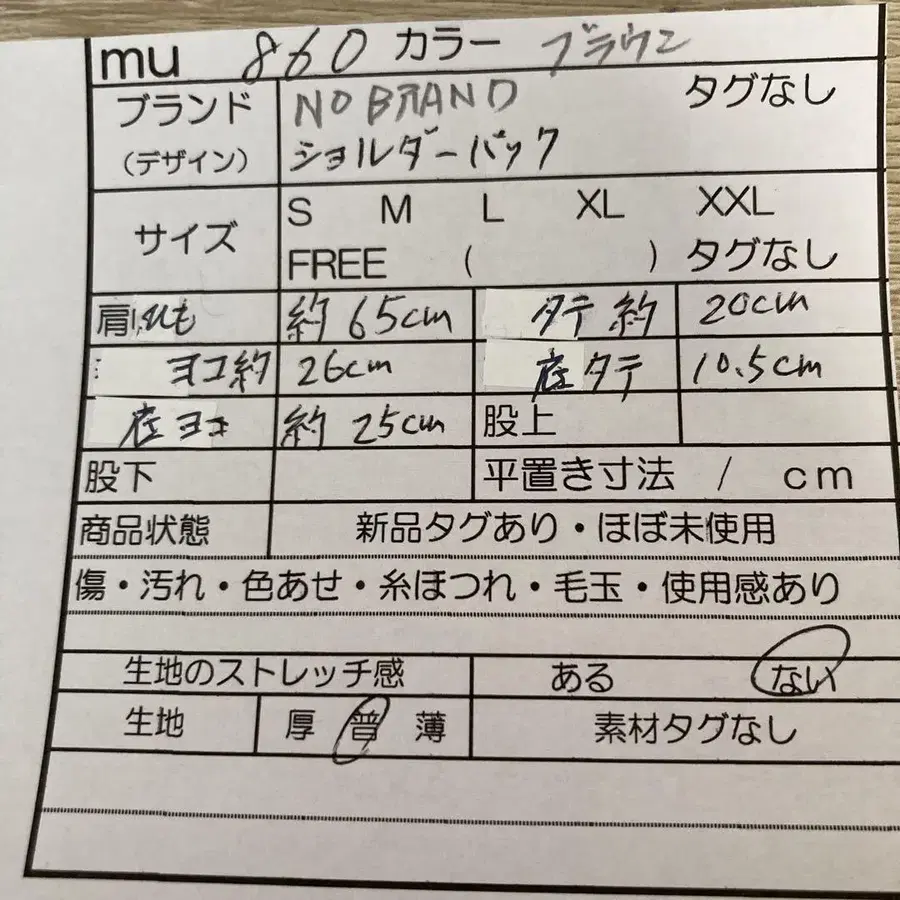 mu 860 カラー ブラウン
ブランド NO BRAND タグなし
(デザイン) ショルダーバック
サイズ S M L XL XXL
FREE ( ) タグなし
肩ひも 約 65cm タテ 約 20cm
ヨコ約 26cm 底タテ 10.5cm
底ヨコ 約 25cm 股上
股下 平置き寸法 / cm
商品状態 新品タグあり・ほぼ未使用
傷・汚れ・色あせ・糸ほつれ・毛玉・使用感あり
生地のストレッチ感 ある ない
生地 厚 普 薄 素材タグなし